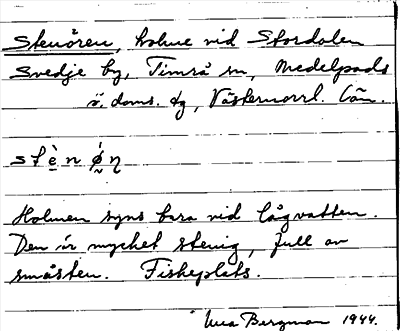 Stenören, holme vid Stordalen
Svedje by, Timrå sn, Medelpads
ö. doms. tg, Västernorrl. län.
stènǿn
Holmen syns bara vid lågvatten.
Den är mycket stenig, full av
småsten. Fiskeplats.
Bergman 1944.